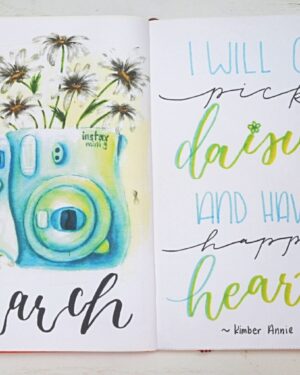 instax
mini 9
arch
I WILL G
pick
daisi
AND HAV
happ
heart
~ Kimber Annie